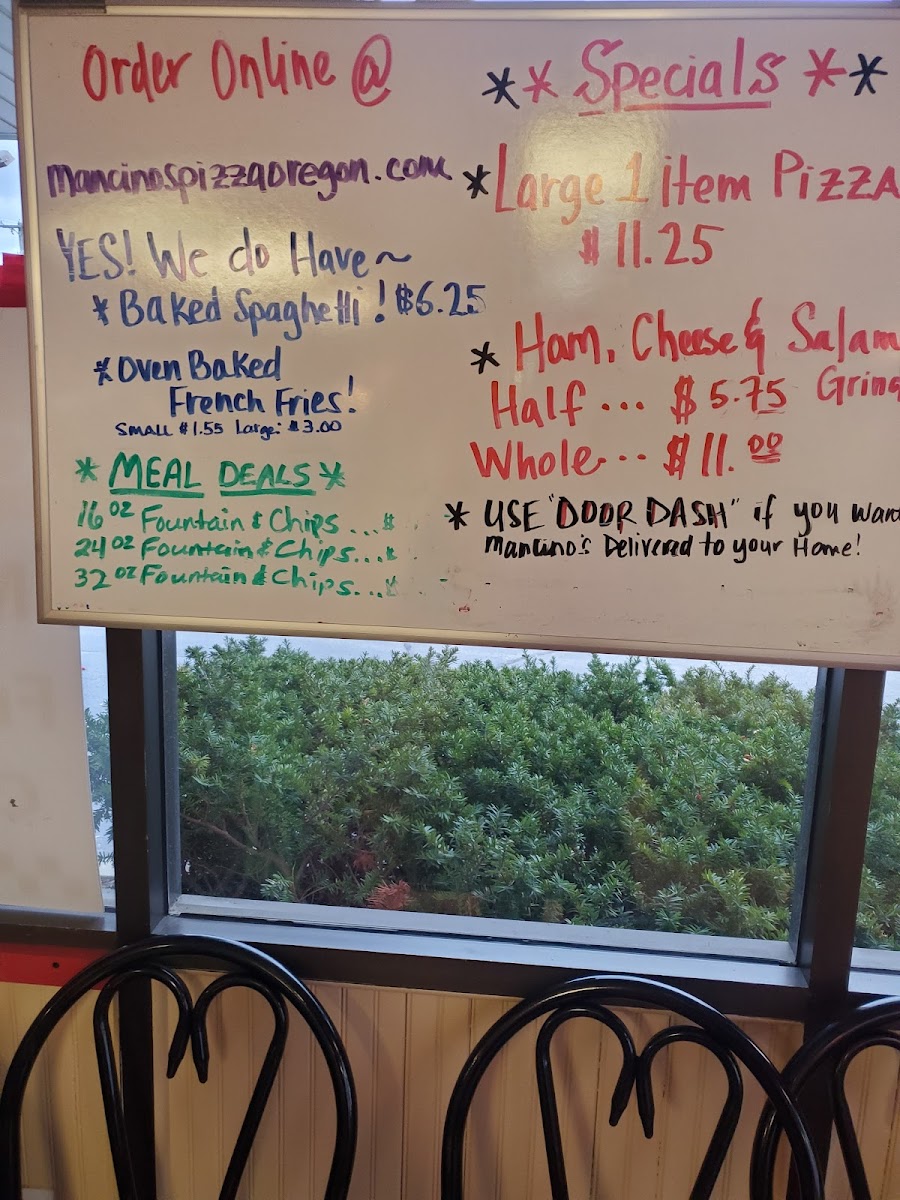 Order Online @
mancinospizzaoregon.com
YES! We do Have~
* Baked Spaghetti! $6.25
* Oven Baked
French Fries!
SMALL $1.55 Large: $3.00
* MEAL DEALS *
16 oz Fountain & Chips...$
24 oz Fountain & Chips...$
32 oz Fountain & Chips...$
** Specials **
* Large 1 item Pizza
$11.25
* Ham, Cheese & Salam
Grin
Half... $5.75
Whole... $11.00
* USE "DOOR DASH" if you Want
Mancino's Delivered to your Home!